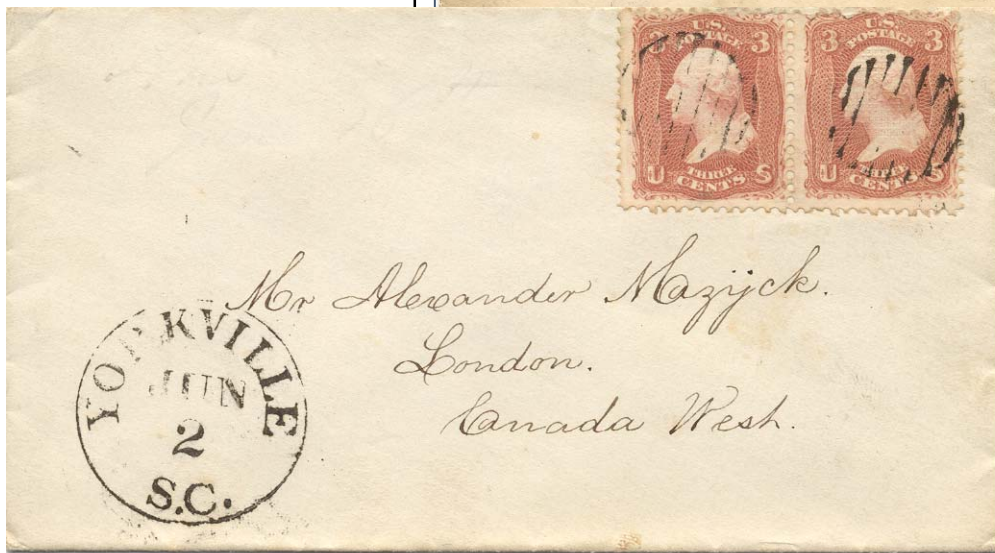 3 U.S. POSTAGE 3
U THREE CENTS S
3 U.S. POSTAGE 3
U CENTS S
Mr Alexander Mazÿck.
London.
Canada West.
YORKVILLE
JUN
2
S.C.